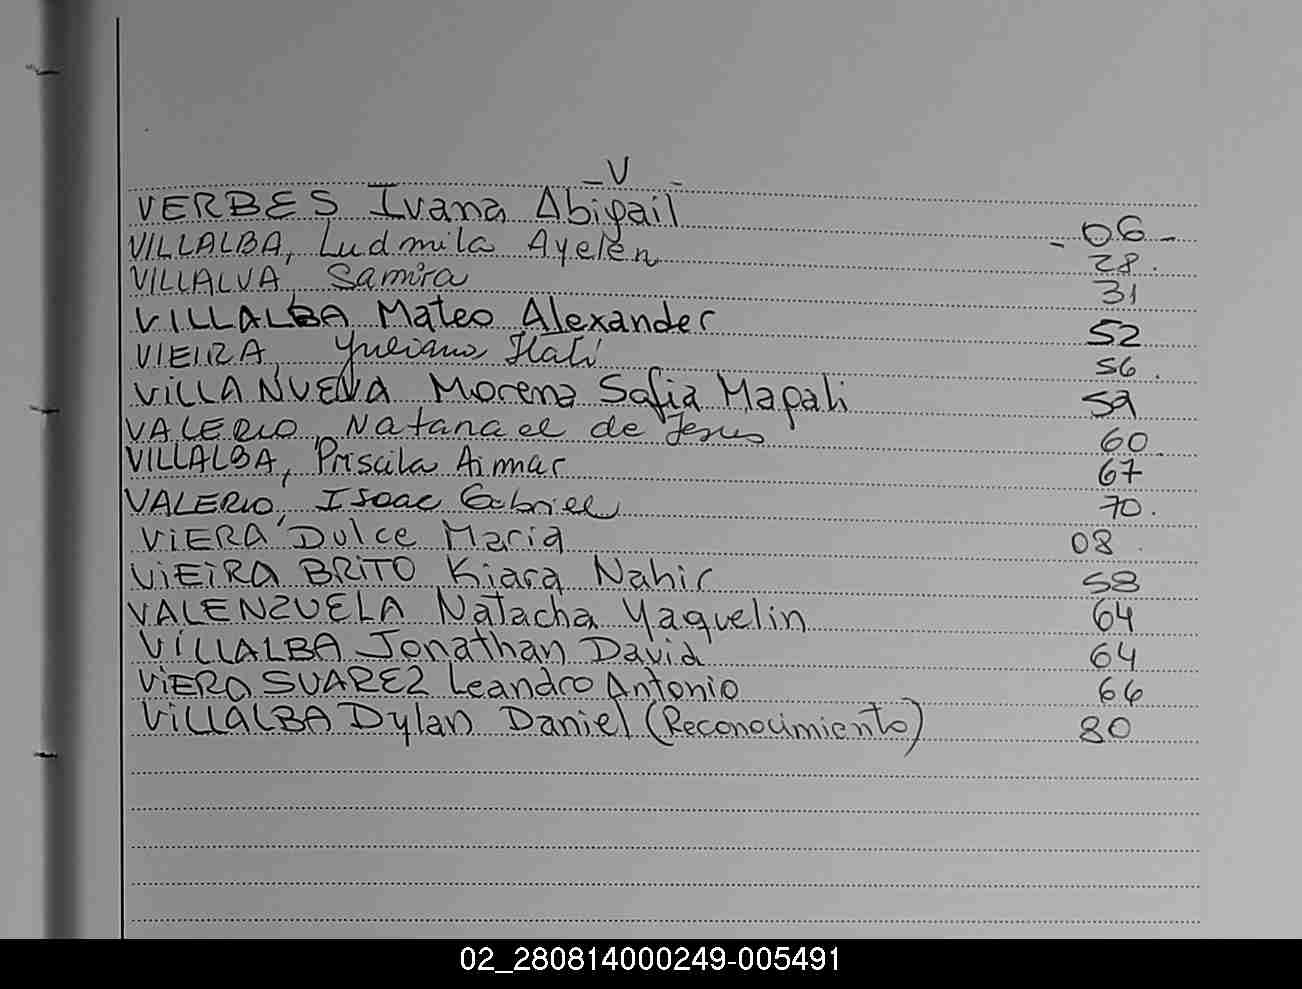 - V -
VERBES Ivana Abigail - 06 -
VILLALBA, Ludmila Ayelén 28.
VILLALVA, Samira 31
VILLALBA, Mateo Alexander 52
VIEIRA, Yuliano Itatí 56.
VILLANUEVA Morena Sofia Magali 59
VALERIO, Natanael de Jesus 60
VILLALBA, Priscila Aimar 67
VALERIO, Isaac Gabriel 70.
VIERA Dulce Maria 08
VIEIRA BRITO Kiara Nahir 58
VALENZUELA Natacha Yaquelin 64
VILLALBA Jonathan David 64
VIERA SUAREZ Leandro Antonio 66
VILLALBA Dylan Daniel (Reconocimiento) 80
02_280814000249-005491